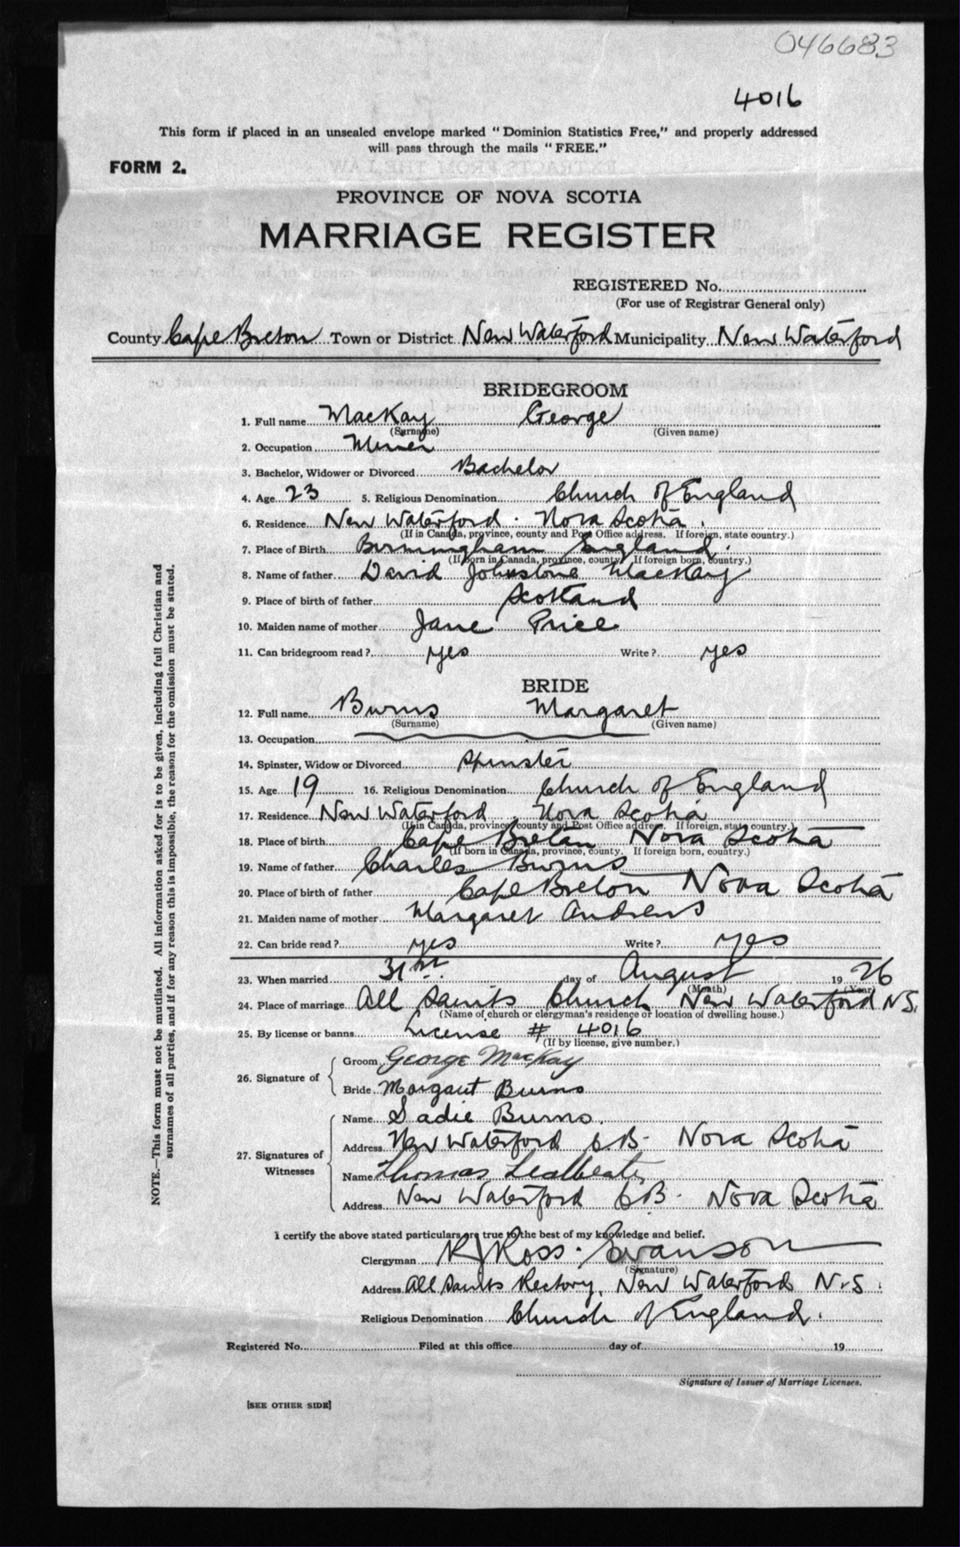 046683
4016
This form if placed in an unsealed envelope marked "Dominion Statistics Free," and properly addressed
will pass through the mails "FREE."
FORM 2.
PROVINCE OF NOVA SCOTIA
MARRIAGE REGISTER
REGISTERED No.
(For use of Registrar General only)
County Cape Breton Town or District New Waterford Municipality New Waterford
BRIDEGROOM
1. Full name MacKay George
(Surname) (Given name)
2. Occupation Miner
3. Bachelor, Widower or Divorced Bachelor
4. Age 23 5. Religious Denomination Church of England
6. Residence New Waterford. Nova Scotia.
(If in Canada, province, county and Post Office address. If foreign, state country.)
7. Place of Birth Birmingham England.
(If born in Canada, province, county. If foreign born, country.)
8. Name of father David Johnstone MacKay
9. Place of birth of father Scotland
10. Maiden name of mother Jane Price
11. Can bridegroom read? yes Write? yes
BRIDE
12. Full name Burns Margaret
(Surname) (Given name)
13. Occupation
14. Spinster, Widow or Divorced Spinster
15. Age 19 16. Religious Denomination Church of England
17. Residence New Waterford Nova Scotia
(If in Canada, province, county and Post Office address. If foreign, state country.)
18. Place of birth Cape Breton Nova Scotia
(If born in Canada, province, county. If foreign born, country.)
19. Name of father Charles Burns
20. Place of birth of father Cape Breton Nova Scotia
21. Maiden name of mother Margaret Andrews
22. Can bride read? yes Write? yes
23. When married 31st day of August 1926
(Month) (Year)
24. Place of marriage All Saints Church New Waterford N.S.
(Name of church or clergyman's residence or location of dwelling house.)
25. By license or banns License # 4016
(If by license, give number.)
26. Signature of Groom George MacKay
Bride Margaret Burns
27. Signatures of Witnesses Name Sadie Burns.
Address New Waterford C.B. Nova Scotia
Name Thomas
Address New Waterford C.B. Nova Scotia
I certify the above stated particulars are true to the best of my knowledge and belief.
Clergyman R J Ross. Swanson
(Signature)
Address All Saints Rectory, New Waterford N.S.
Religious Denomination Church of England.
Registered No. Filed at this office day of 19
Signature of Issuer of Marriage Licenses.
[SEE OTHER SIDE]
NOTE.—This form must not be mutilated. All information asked for is to be given, including full Christian and
surnames of all parties, and if for any reason this is impossible, the reason for the omission must be stated.